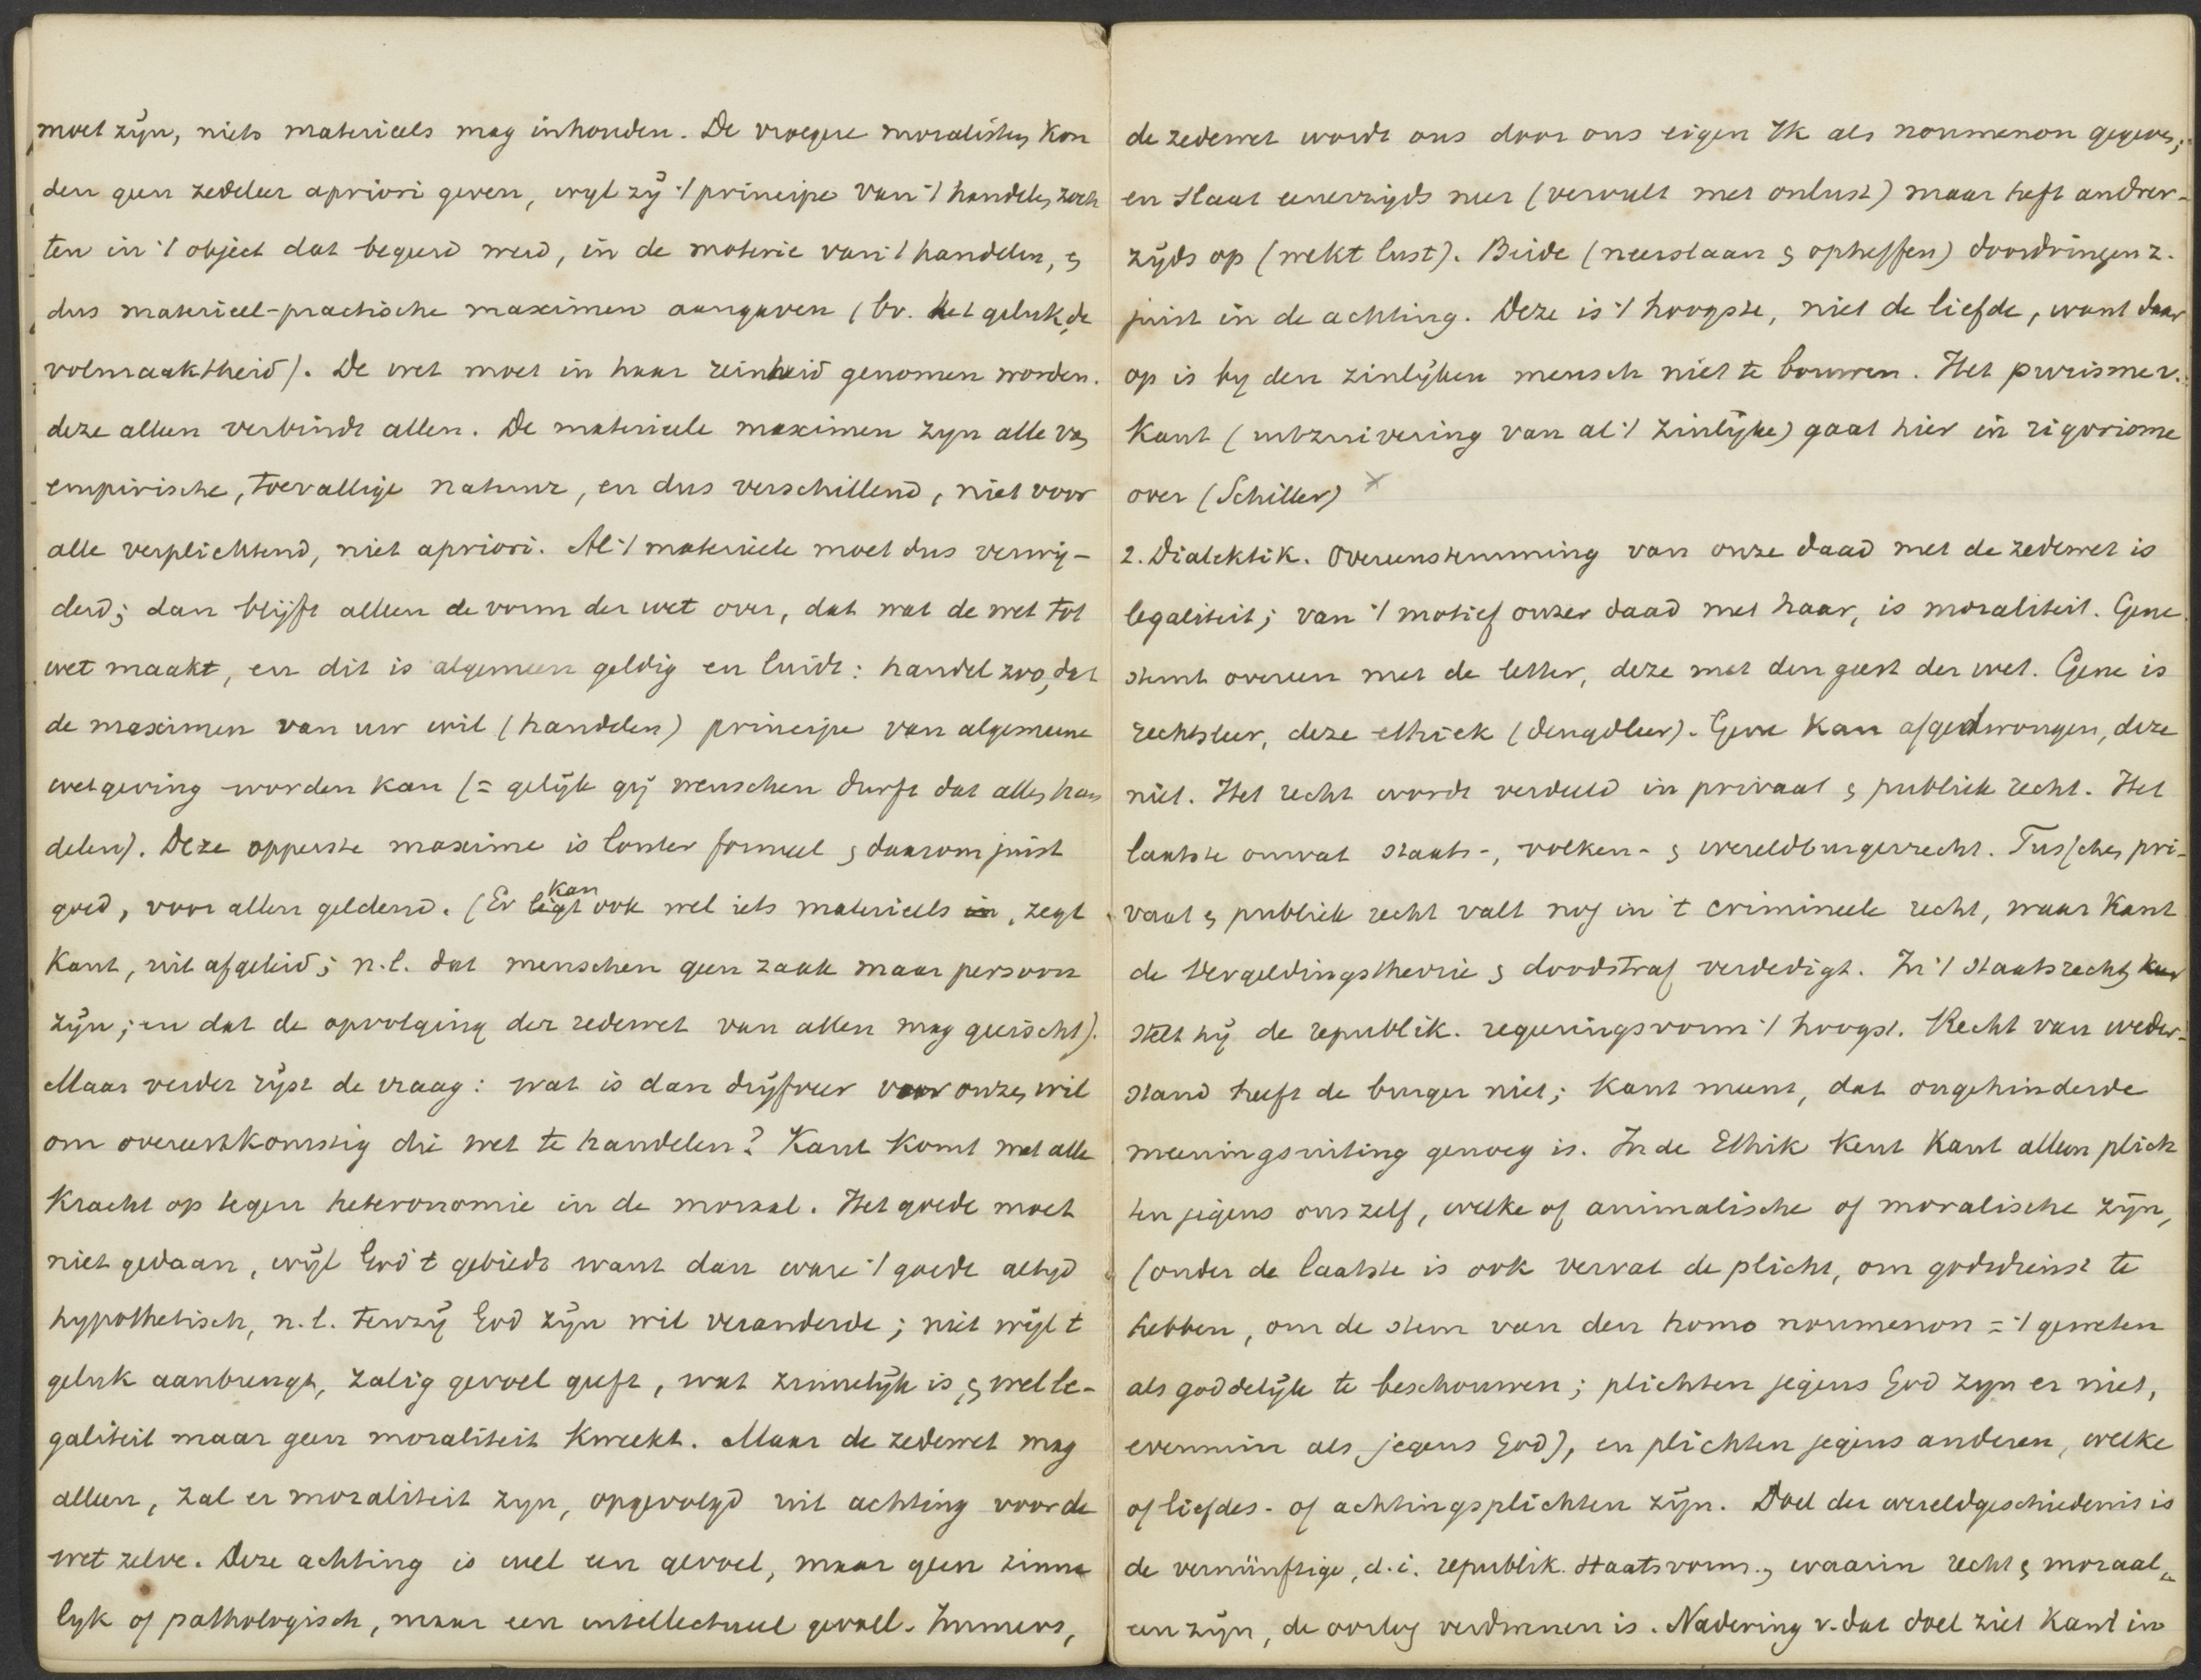 moet zijn, niets materieels mag inhouden. De vroegere moralisten kon
den geen zedeleer apriori geven, wyl zij 't principe van 't handelen zoch
ten in 't object dat begeerd werd, in de materie van 't handelen, &
dus materieel-practische maximen aangaven (bv. het geluk, de
volmaaktheid). De wet moet in haar reinheid genomen worden.
deze alleen verbindt allen. De materieele maximen zyn alle van
empirische, toevallige natuur, en dus verschillend, niet voor
alle verplichtend, niet apriori. Al 't materieele moet dus verwij-
derd; dan blijft alleen de vorm der wet over, dat wat de wet tot
wet maakt, en dit is algemeen geldig en luidt: handel zoo, dat
de maximen van uw wil (handelen) principe van algemeene
wetgeving worden kan (= gelijk gij wenschen durft dat allen han
delen). Deze opperste maxime is louter formeel & daarom juist
goed, voor allen geldend. (Er kan ook wel iets materieels, zegt
Kant, uit afgeleid; n.l. dat menschen geen zaak maar persoon
zijn; en dat de opvolging der zedewet van allen mag geëischt).
Maar verder rijst de vraag: wat is dan drijfveer voor onzen wil
om overeenkomstig die wet te handelen? Kant komt met alle
kracht op tegen heteronomie in de moraal. Het goede moet
niet gedaan, wijl God 't gebiedt want dan ware 't goede altyd
hypothetisch, n.l. tenzij God zijn wil veranderde; niet wijl 't
geluk aanbrengt, zalig gevoel geeft, wat zinnelijk is, & wel le-
galiteit maar geen moraliteit kweekt. Maar de zedewet mag
alleen, zal er moraliteit zyn, opgevolgd uit achting voor de
wet zelve. Deze achting is wel een gevoel, maar geen zinne
lyk of pathologisch, maar een intellectueel gevoel. Immers,
de zedewet wordt ons door ons eigen Ik als noumenon gegeven;
en slaat eenerzijds neer (vervult met onlust) maar heft andrer-
zijds op (wekt lust). Beide (neerslaan & opheffen) doordringen z.
juist in de achting. Deze is 't hoogste, niet de liefde, want daar
op is by den zinlijken mensch niet te bouwen. Het purisme v.
Kant (uitzuivering van al 't zinlijke) gaat hier in rigorisme
over (Schiller) ×
2. Dialektik. Overeenstemming van onze daad met de zedewet is
legaliteit; van 't motief onzer daad met haar, is moraliteit. Gene
stemt overeen met de letter, deze met den geest der wet. Gene is
rechtsleer, deze ethiek (deugdleer). Gene kan afgedwongen, deze
niet. Het recht wordt verdeeld in privaat & publiek recht. Het
laatste omvat staats-, volken- & wereldburgerrecht. Tusschen pri-
vaat & publiek recht valt nog in 't crimineele recht, waar Kant
de vergeldingstheorie & doodstraf verdedigt. In 't staatsrecht
stelt hij de republik. regeeringsvorm 't hoogst. Recht van weder-
stand heeft de burger niet; Kant meent, dat ongehinderde
meeningsuiting genoeg is. In de Ethik kent Kant alleen plich
ten jegens ons zelf, welke of animalische of moralische zijn,
(onder de laatste is ook vervat de plicht, om godsdienst te
hebben, om de stem van den homo noumenon = 't geweten
als goddelijk te beschouwen; plichten jegens God zyn er niet,
evenmin als jegens God), en plichten jegens anderen, welke
of liefdes- of achtingsplichten zijn. Doel der wereldgeschiedenis is
de vernünftige, d.i. republik. staatsvorm, waarin recht & moraal
een zijn, de oorlog verdwenen is. Nadering v. dat doel ziet Kant in